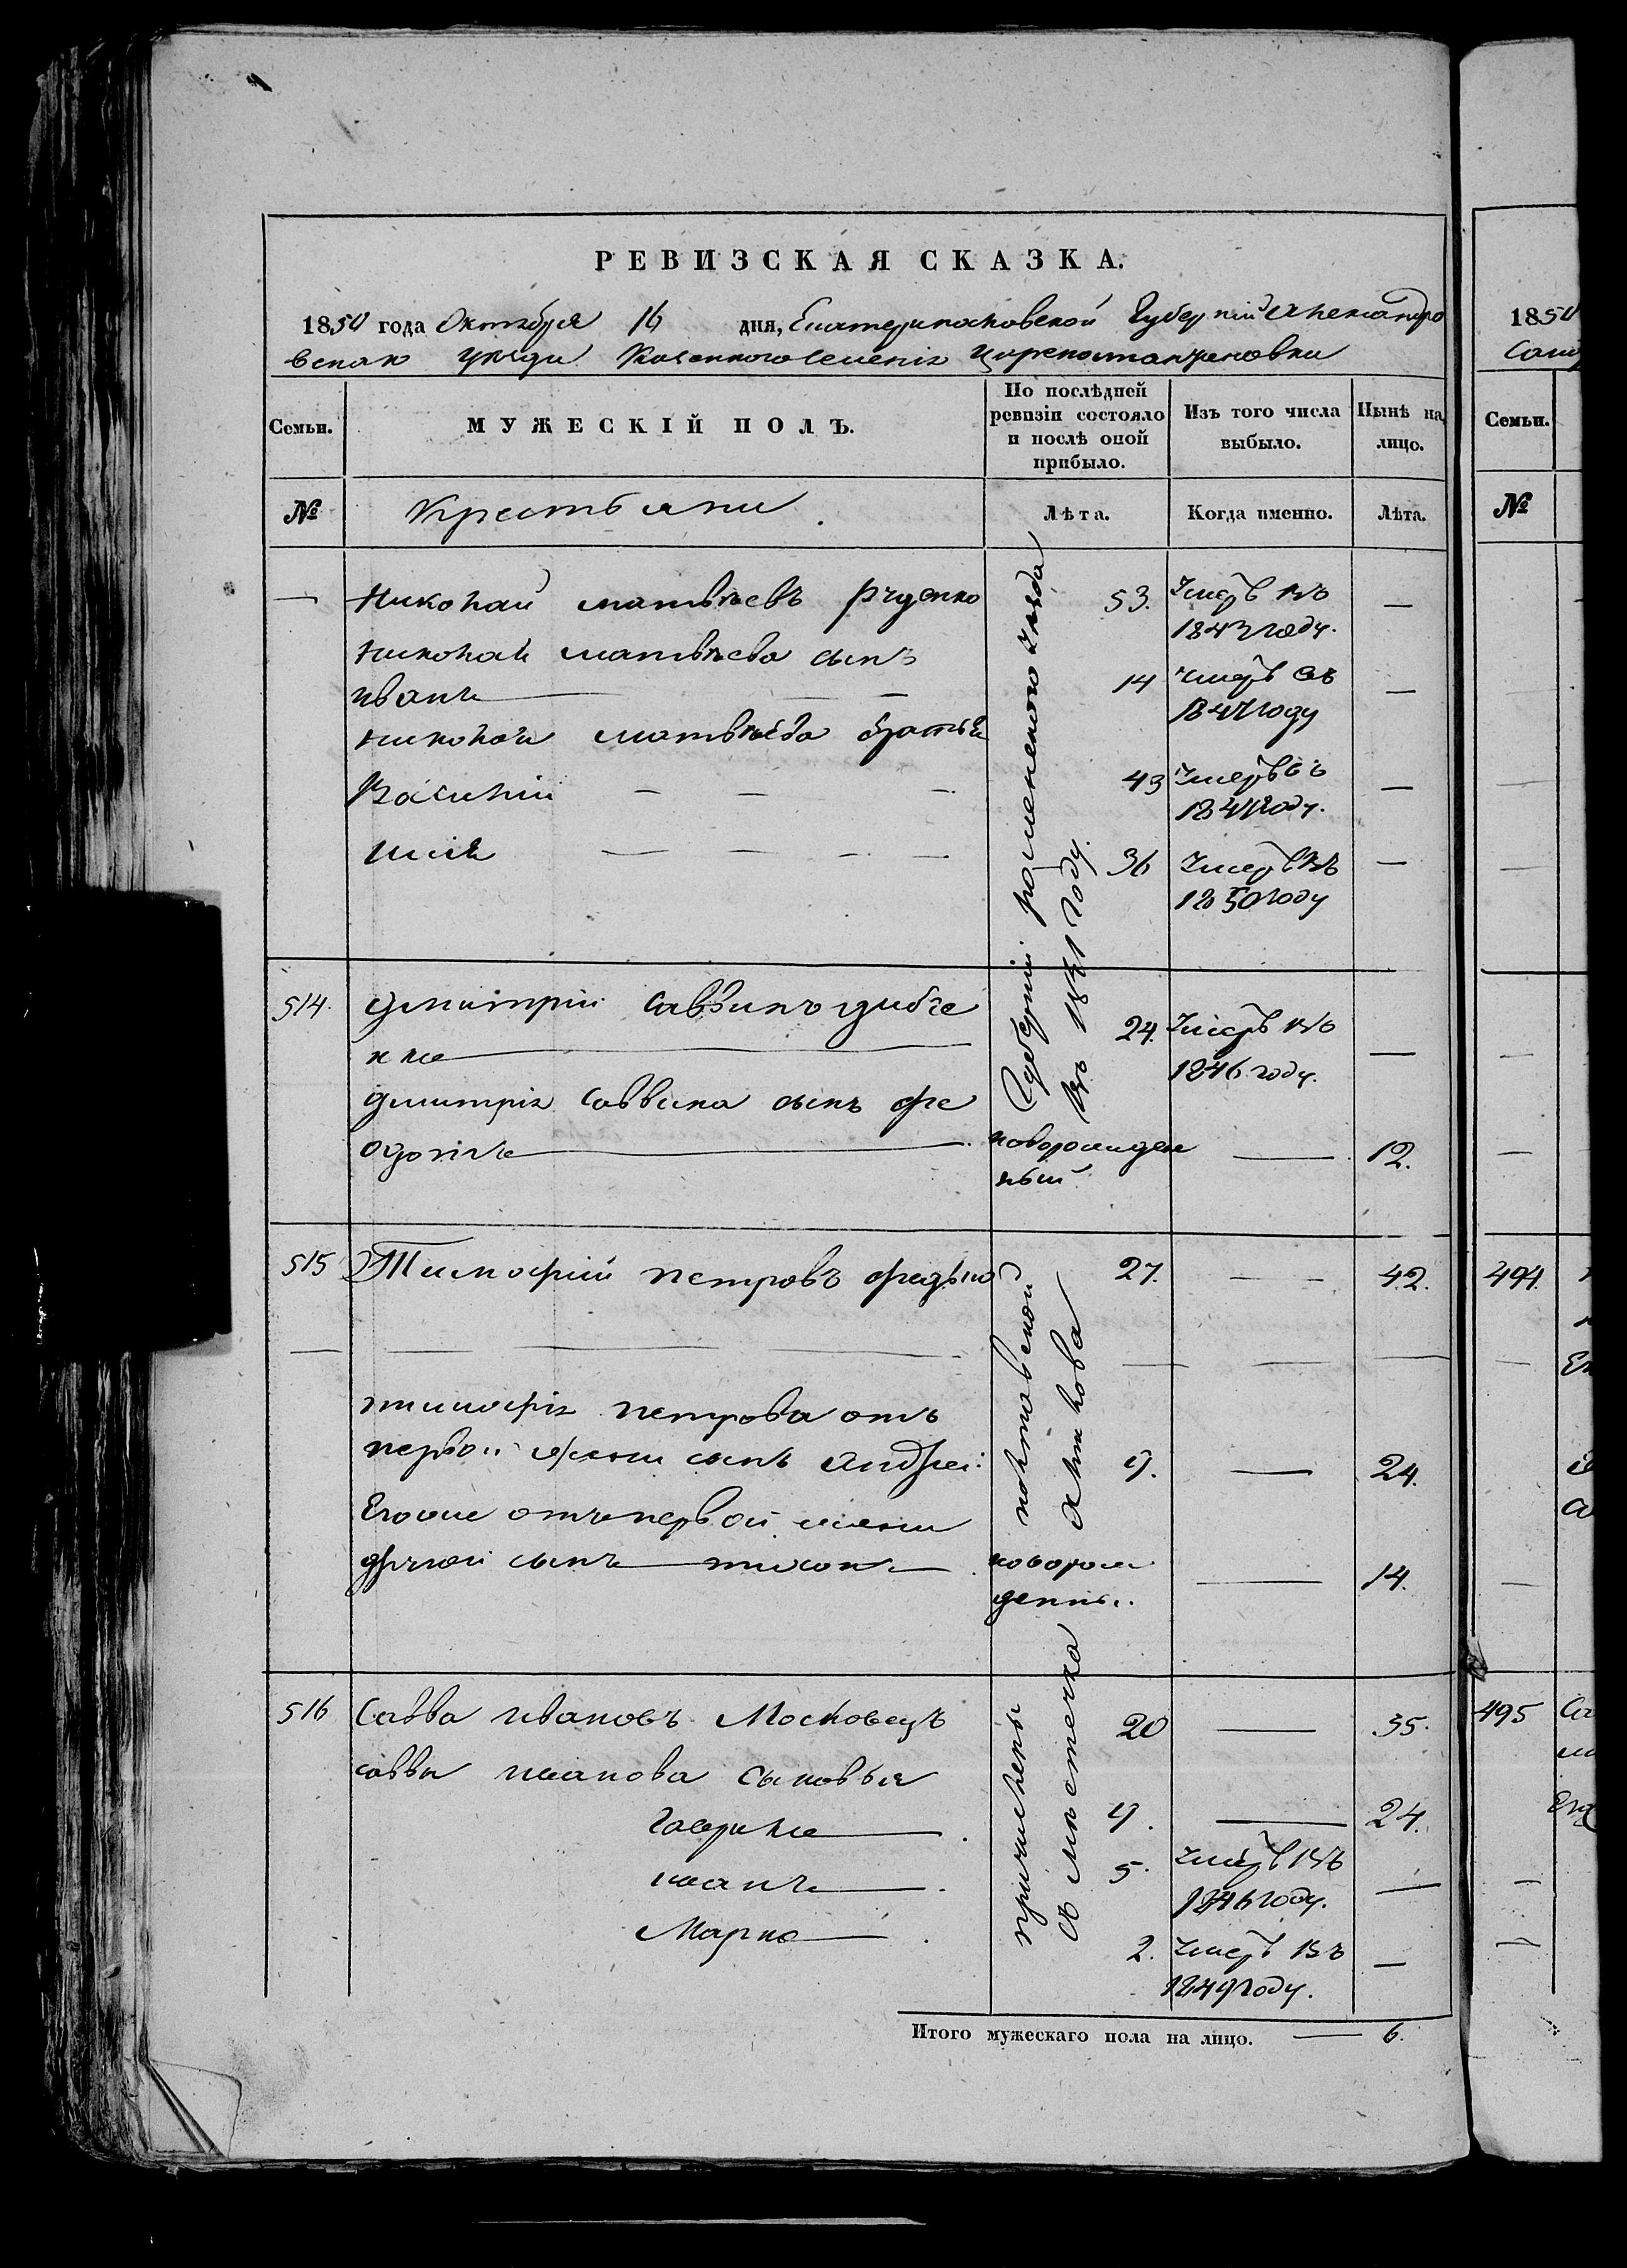 РЕВИЗСКАЯ СКАЗКА.
1850 года Октября 16 дня, Екатеринославской Губерніи Александро
вскаго уезда Казенного селенія Цареконстантиновки
Семьи.
МУЖЕСКІЙ ПОЛЪ.
По послѣдней ревизіи состояло и послѣ оной прибыло.
Изъ того числа выбыло.
Нынѣ на лицо.
№
Крестьяни
Лѣта.
Когда именно.
Лѣта.
— Николай матвѣевъ Руденко 53. Умеръ въ —
1843 году.
николая матвѣева сынъ
иванъ — 14 умеръ въ —
1847 году
николая матвѣева братья
Василій — — — 43 умеръ въ —
184 году.
илія — — — — 36 умеръ въ —
1850 году
514. Дмитрій саввинъ 24. Умеръ въ —
1846 году.
дмитрія саввина сынъ фе
одосій — новорожден — 12.
ный
515 Тимофій петровъ 27. — — 42.
тимофія петрова отъ
первой жены сынъ андрей 9. — 24.
Егоже отъ первой жены
другой сынъ тихон — новорож — 14.
денны.
516 Савва ивановъ Московецъ 20 — 35.
саввы иванова сыновья
Гаврило — 9. — 24.
иванъ — 5. умеръ въ —
1846 году.
Марко — 2. умеръ въ —
1849 году.
причислены полтавской Губерніи роменского уезда
Въ 1831 году.
Итого мужескаго пола на лицо. — 6.
1850
Семьи.
№
494.
495